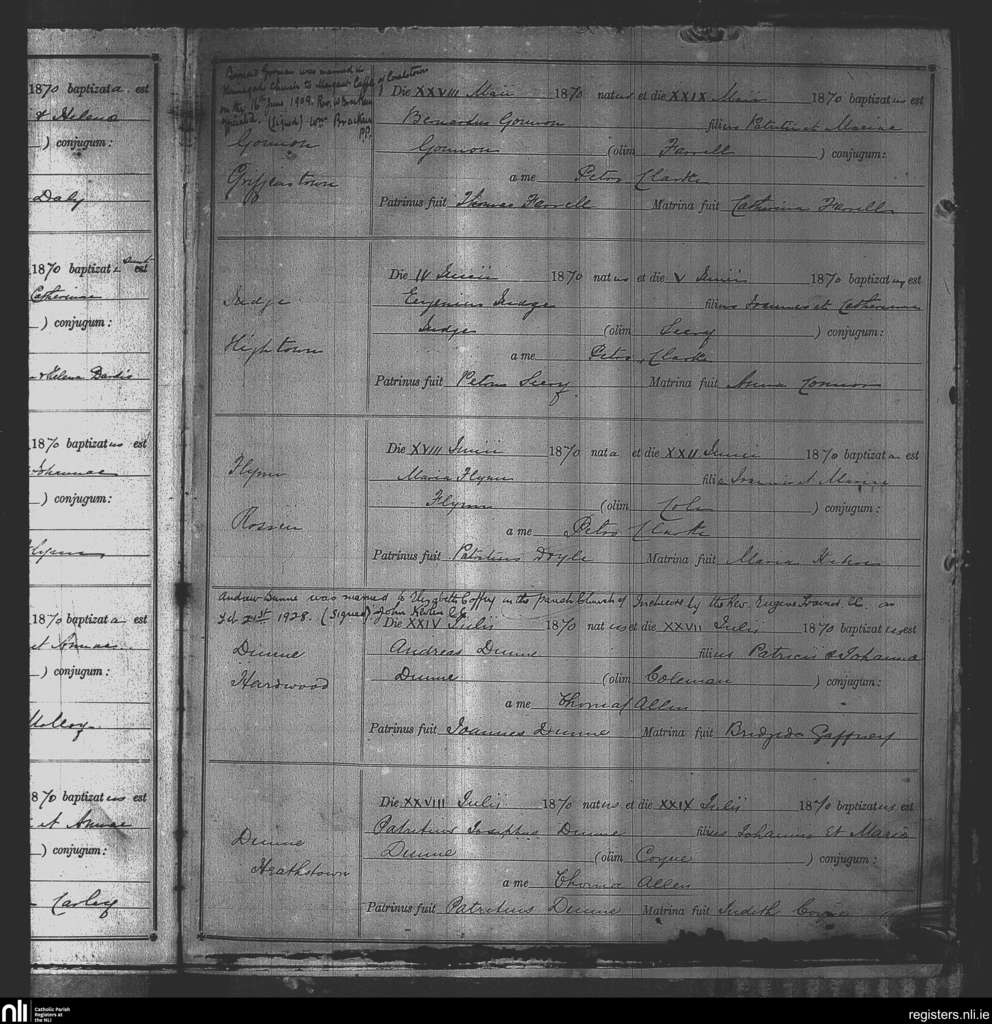 1870 baptizata est
& Helena
) conjugum:
Daly
1870 baptizat sunt est
Catherinae
) conjugum:
& Helena Dardis
1870 baptizatus est
Johannae
) conjugum:
Flynn
1870 baptizata est
et Annae
) conjugum:
Molloy
1870 baptizatus est
et Annae
) conjugum:
Carley
Gorman was married in
church to Margaret of Coralstown
on the 16th June 1909. Rev. W Bracken
(Signed) Wm Bracken
P.P.
Die XXVIII Maii 1870 natus et die XXIX Maii 1870 baptizatus est
Bernardus filius et Mariae
Farrell (olim ) conjugum:
Griffinstown
a me Petro Clarke
Patrinus fuit Thomas Farrell Matrina fuit Catherina Farrell
Die IV Junii 1870 natus et die V Junii 1870 baptizatus est
Judge
Eugenius Judge filius Joannis et Catherinae
Judge (olim Seery ) conjugum:
Hightown
a me Petro Clarke
Patrinus fuit Petrus Seery Matrina fuit Anna Connor
Die XVIII Junii 1870 nata et die XXII Junii 1870 baptizata est
Flynn
Maria Flynn filia Joannis et Mariae
Flynn (olim ) conjugum:
a me Petro Clarke
Patrinus fuit Patritius Doyle Matrina fuit Maria
Andrew Dunne was married to Elizabeth Coffey in the parish Church of by the Rev. Eugene C.C. on
Feb 21st 1928. (Signed) John C.C.
Die XXIV Julii 1870 natus et die XXVII Julii 1870 baptizatus est
Dunne
Andreas Dunne filius Patricii & Johanna
Hardwood
Dunne (olim Coleman ) conjugum:
a me Thomas Allen
Patrinus fuit Joannes Dunne Matrina fuit Bridgida Gaffney
Die XXVIII Julii 1870 natus et die XXIX Julii 1870 baptizatus est
Patritius Josephus Dunne filius Johannis Et Maria
Dunne
Dunne (olim Coyne ) conjugum:
Heathstown
a me Thoma Allen
Patrinus fuit Patritius Dunne Matrina fuit Judith Coyne
nli Catholic Parish Registers at the NLI
registers.nli.ie